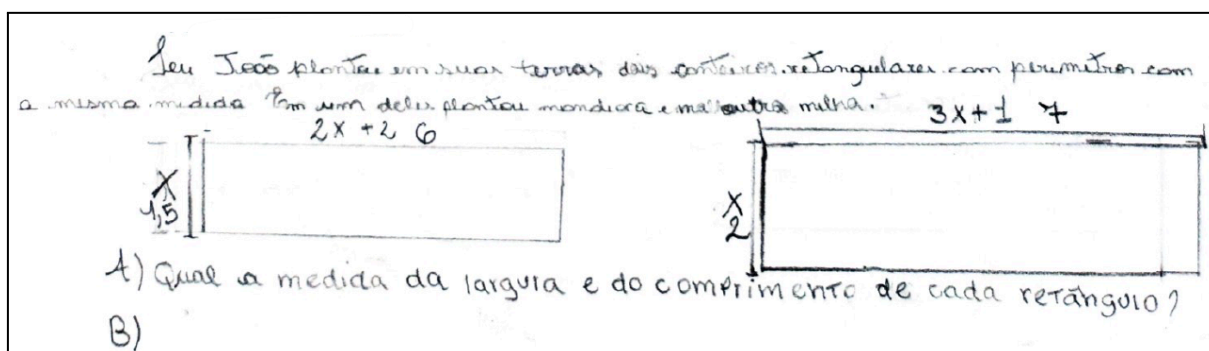 Seu João plantou em suas terras dois canteiros retangulares com perimetros com
a mesma medida Em um deles plantou mandioca e no outro milho.
2x + 2 6
3x + 1 7
x
1,5
x
2
A) Qual a medida da largura e do comprimento de cada retângulo?
B)